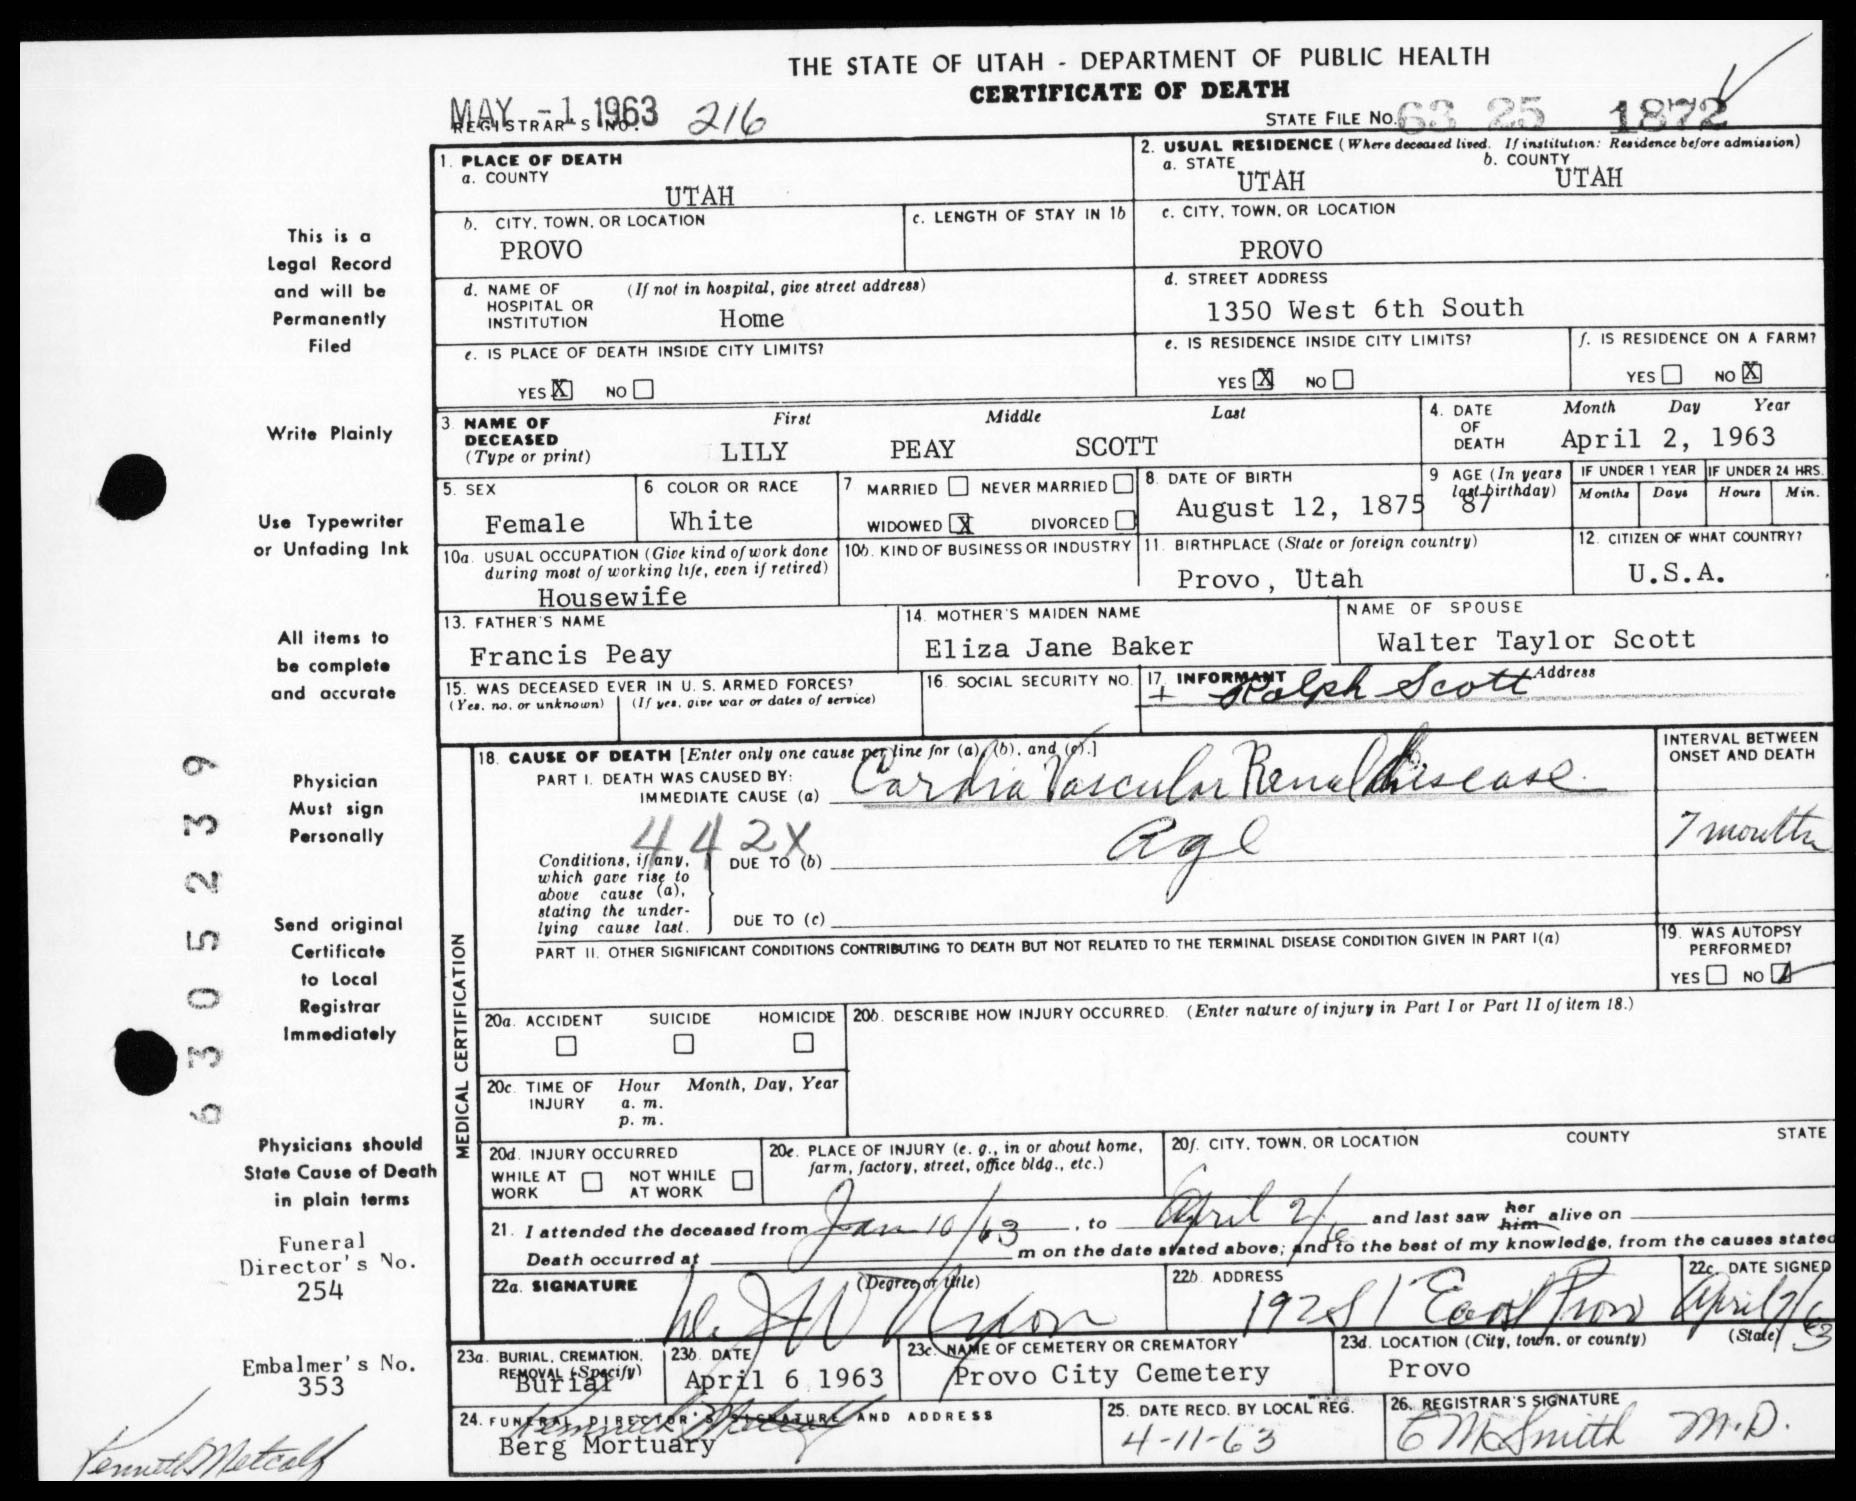 THE STATE OF UTAH - DEPARTMENT OF PUBLIC HEALTH
CERTIFICATE OF DEATH
MAY -1 1963
REGISTRAR'S NO. 216
STATE FILE NO. 63 25 1872
This is a
Legal Record
and will be
Permanently
Filed
Write Plainly
Use Typewriter
or Unfading Ink
All items to
be complete
and accurate
Physician
Must sign
Personally
Send original
Certificate
to Local
Registrar
Immediately
Physicians should
State Cause of Death
in plain terms
Funeral
Director's No.
254
Embalmer's No.
353
Kenneth Metcalf
6 3 0 5 2 3 9
1. PLACE OF DEATH
a. COUNTY
UTAH
b. CITY, TOWN, OR LOCATION
PROVO
c. LENGTH OF STAY IN 1b
d. NAME OF HOSPITAL OR INSTITUTION (If not in hospital, give street address)
Home
e. IS PLACE OF DEATH INSIDE CITY LIMITS?
YES X NO
2. USUAL RESIDENCE (Where deceased lived. If institution: Residence before admission)
a. STATE
UTAH
b. COUNTY
UTAH
c. CITY, TOWN, OR LOCATION
PROVO
d. STREET ADDRESS
1350 West 6th South
e. IS RESIDENCE INSIDE CITY LIMITS?
YES X NO
f. IS RESIDENCE ON A FARM?
YES NO X
3 NAME OF DECEASED (Type or print)
First Middle Last
LILY PEAY SCOTT
4. DATE OF DEATH
Month Day Year
April 2, 1963
5. SEX
Female
6 COLOR OR RACE
White
7 MARRIED NEVER MARRIED
WIDOWED X DIVORCED
8. DATE OF BIRTH
August 12, 1875
9 AGE (In years last birthday)
87
IF UNDER 1 YEAR
Months Days
IF UNDER 24 HRS.
Hours Min.
10a. USUAL OCCUPATION (Give kind of work done during most of working life, even if retired)
Housewife
10b. KIND OF BUSINESS OR INDUSTRY
11. BIRTHPLACE (State or foreign country)
Provo, Utah
12. CITIZEN OF WHAT COUNTRY?
U.S.A.
13. FATHER'S NAME
Francis Peay
14. MOTHER'S MAIDEN NAME
Eliza Jane Baker
NAME OF SPOUSE
Walter Taylor Scott
15. WAS DECEASED EVER IN U. S. ARMED FORCES?
(Yes, no, or unknown) (If yes, give war or dates of service)
16. SOCIAL SECURITY NO.
17. INFORMANT Address
+ Ralph Scott
MEDICAL CERTIFICATION
18. CAUSE OF DEATH [Enter only one cause per line for (a), (b), and (c).]
PART I. DEATH WAS CAUSED BY:
IMMEDIATE CAUSE (a) Cardia Vascular Renal disease
442X
Conditions, if any, which gave rise to above cause (a), stating the underlying cause last.
DUE TO (b) Age
DUE TO (c)
INTERVAL BETWEEN ONSET AND DEATH
7 months
PART II. OTHER SIGNIFICANT CONDITIONS CONTRIBUTING TO DEATH BUT NOT RELATED TO THE TERMINAL DISEASE CONDITION GIVEN IN PART I(a)
19. WAS AUTOPSY PERFORMED?
YES NO
20a. ACCIDENT SUICIDE HOMICIDE
20b. DESCRIBE HOW INJURY OCCURRED. (Enter nature of injury in Part I or Part II of item 18.)
20c. TIME OF INJURY
Hour Month, Day, Year
a. m.
p. m.
20d. INJURY OCCURRED
WHILE AT WORK NOT WHILE AT WORK
20e. PLACE OF INJURY (e. g., in or about home, farm, factory, street, office bldg., etc.)
20f. CITY, TOWN, OR LOCATION COUNTY STATE
21. I attended the deceased from Jan 10/63, to April 2/6 and last saw her him alive on
Death occurred at m on the date stated above; and to the best of my knowledge, from the causes stated
22a. SIGNATURE (Degree or title)
22b. ADDRESS
192 S 1 East Provo
22c. DATE SIGNED
April 7/63
23a. BURIAL, CREMATION, REMOVAL (Specify)
Burial
23b. DATE
April 6 1963
23c. NAME OF CEMETERY OR CREMATORY
Provo City Cemetery
23d. LOCATION (City, town, or county) (State)
Provo
24. FUNERAL DIRECTOR'S SIGNATURE AND ADDRESS
Kenneth Metcalf
Berg Mortuary
25. DATE RECD. BY LOCAL REG.
4-11-63
26. REGISTRAR'S SIGNATURE
E McSmith M.D.